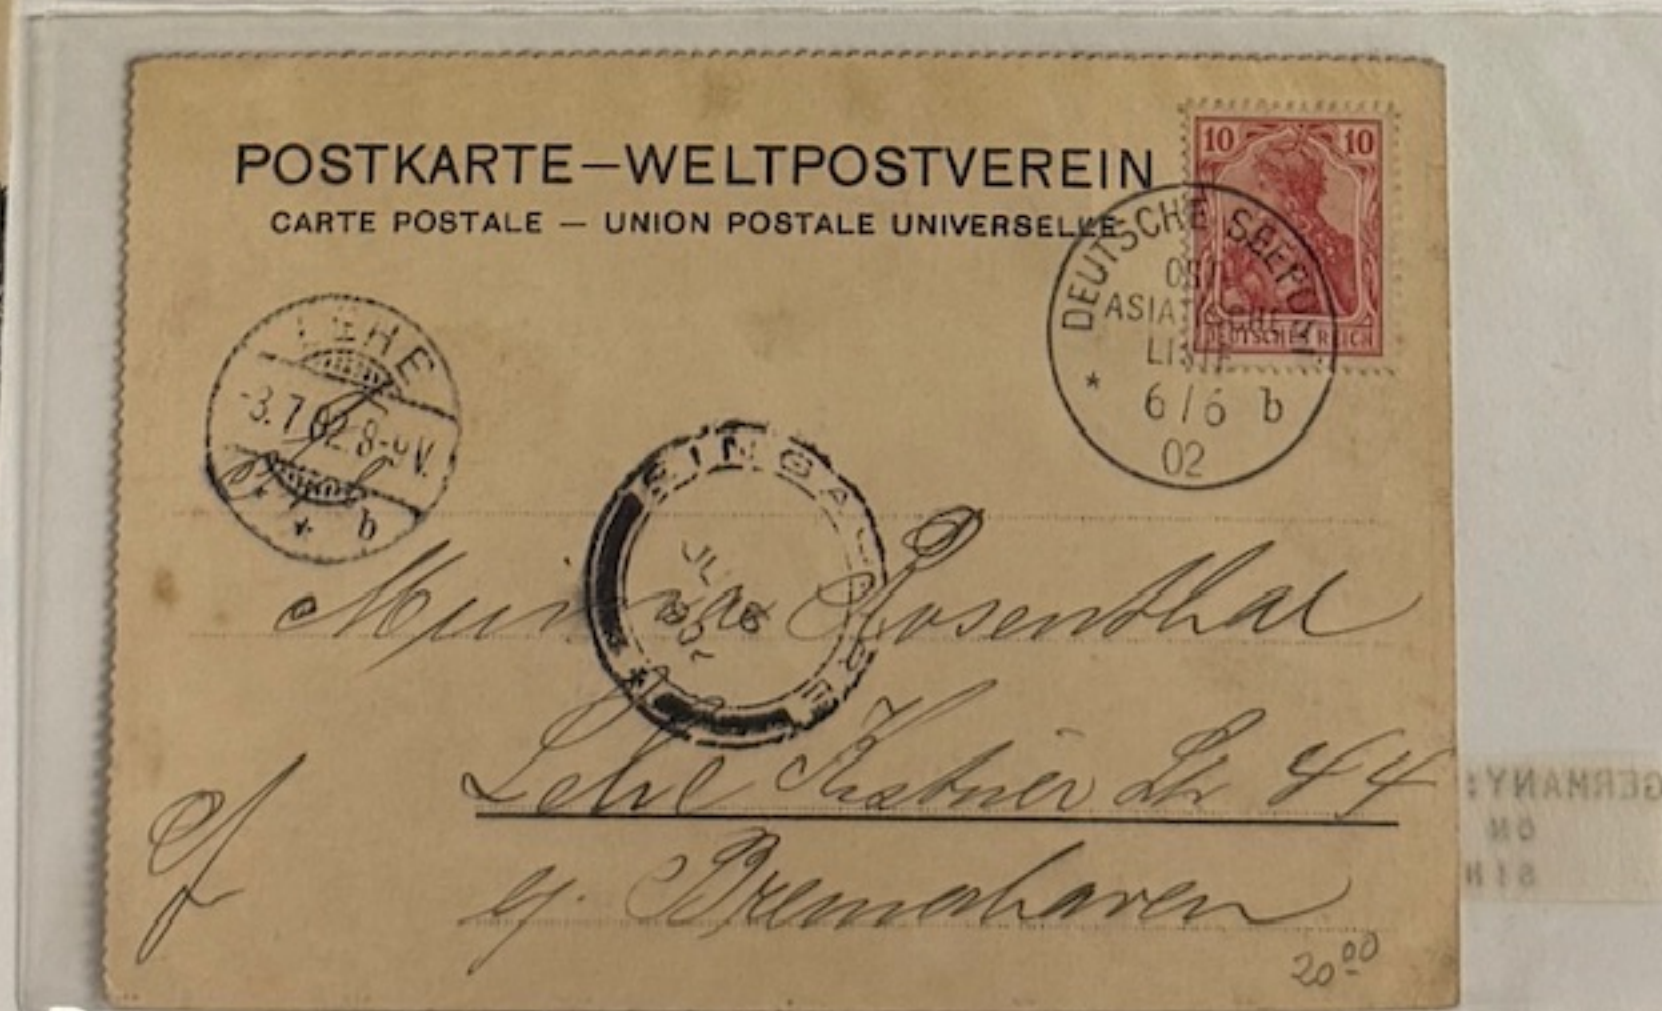 POSTKARTE–WELTPOSTVEREIN
CARTE POSTALE — UNION POSTALE UNIVERSELLE
10 10
DEUTSCHES REICH
DEUTSCHE SEEPOST
OST
ASIATISCHE
LINIE
* 6/6 b
02
LEHE
-3.7.02.8-9V.
* * b
SINGAPORE
JL
Rosenthal
Lehe 44
Bremerhaven
20 00
GERMANY:
ON
SIN